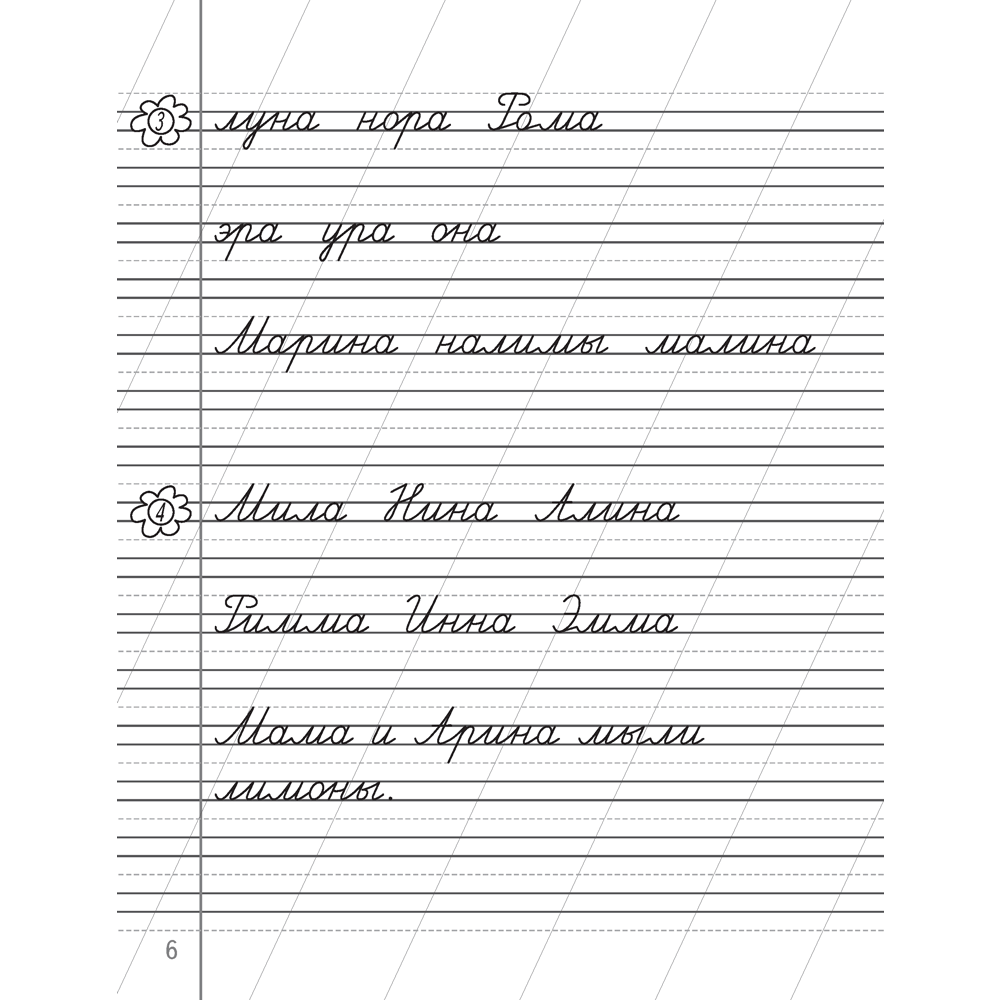 3 луна нора Рома
эра ура она
Марина налимы малина
4 Мила Нина Алина
Римма Инна Эмма
Мама и Арина мыли
лимоны.
6